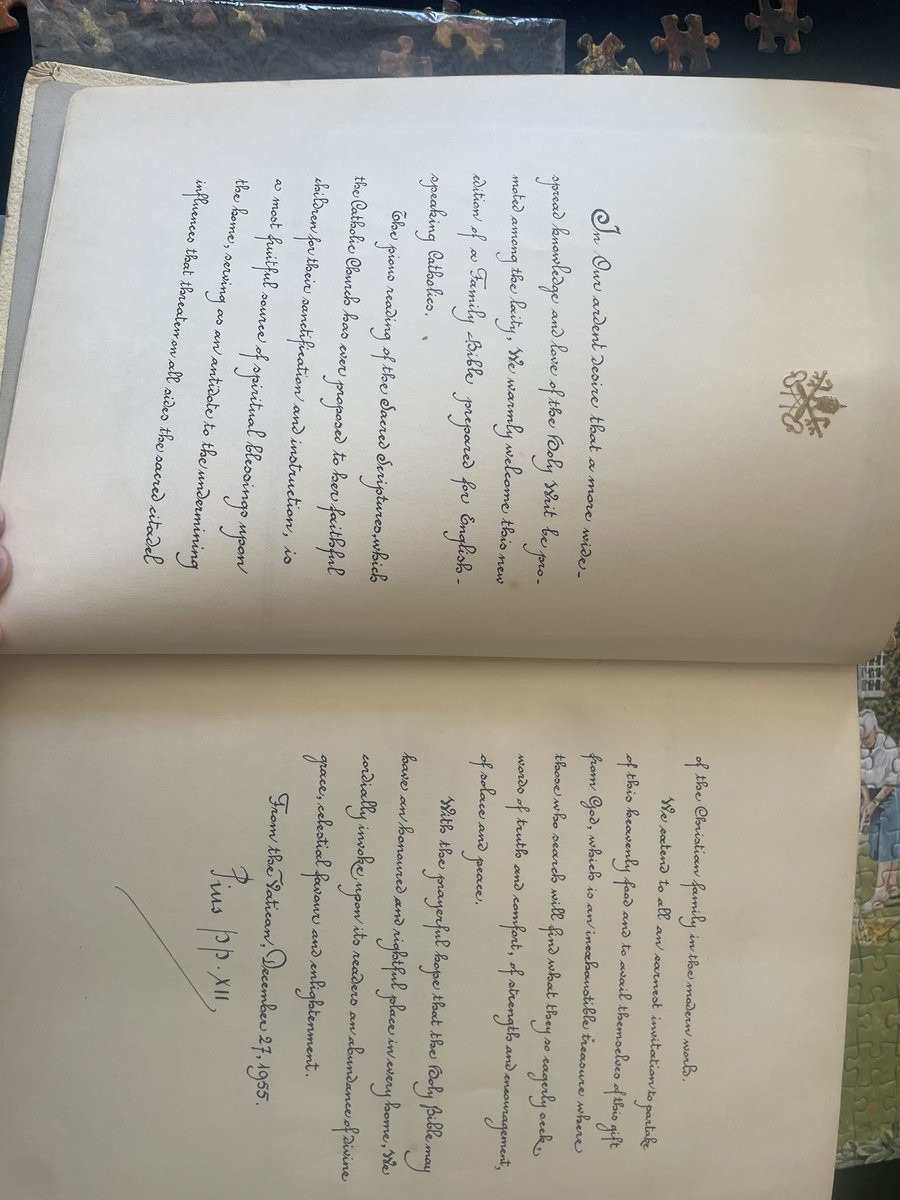 In Our ardent desire that a more wide-
spread knowledge and love of the Holy Writ be pro-
moted among the laity, We warmly welcome this new
edition of a Family Bible prepared for English-
speaking Catholics.
The pious reading of the Sacred Scriptures, which
the Catholic Church has ever proposed to her faithful
children for their sanctification and instruction, is
a most fruitful source of spiritual blessings upon
the home, serving as an antidote to the undermining
influences that threaten on all sides the sacred citadel
of the Christian family in the modern world.
We extend to all an earnest invitation to partake
of this heavenly food and to avail themselves of this gift
from God, which is an inexhaustible treasure where
those who search will find what they so eagerly seek,
words of truth and comfort, of strength and encouragement,
of solace and peace.
With the prayerful hope that the Holy Bible may
have an honoured and rightful place in every home, We
cordially invoke upon its readers an abundance of divine
grace, celestial favour and enlightenment.
From the Vatican, December 27, 1955.
Pius pp. XII